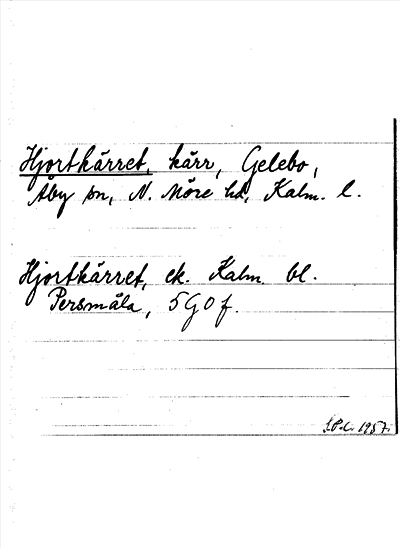 Hjortkärret, kärr, Gelebo,
Åby sn, N. Möre hd, Kalm. l.
Hjortkärret, ek. Kalm. bl.
Persmåla, 5G0f.
1957.